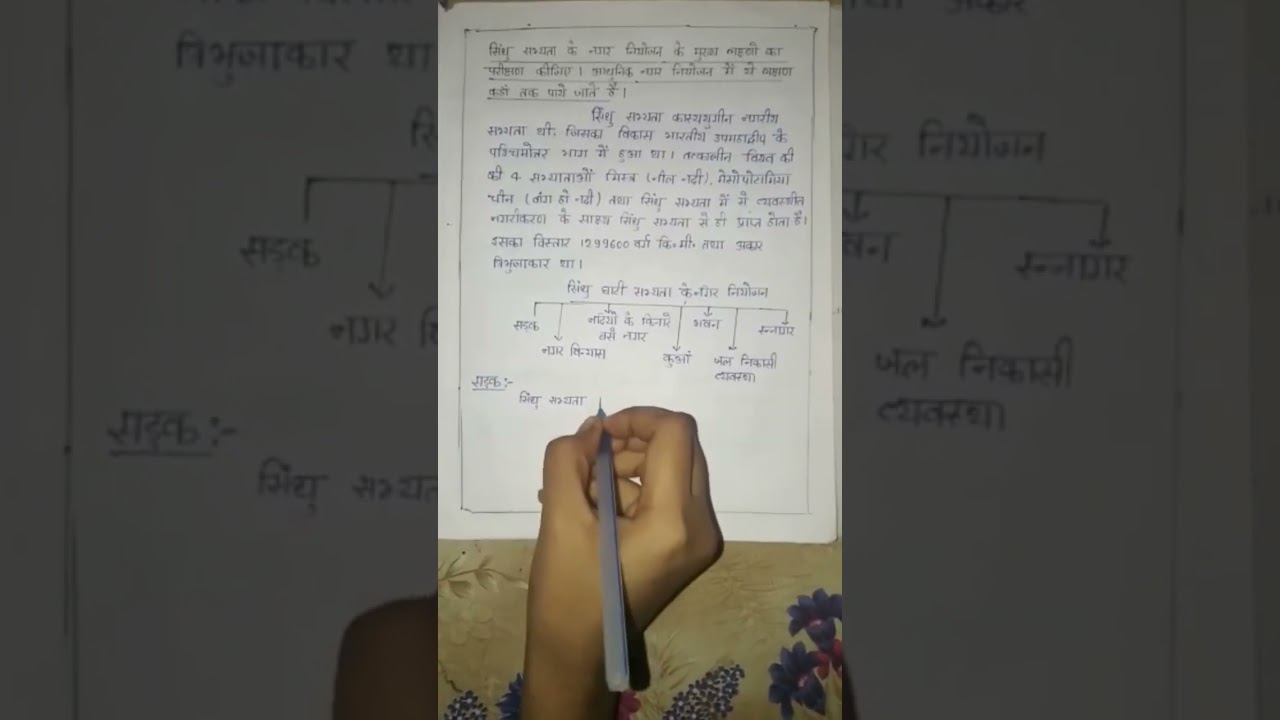 सिंधु सभ्यता के नगर नियोजन के मुख्य लक्षणों का
परीक्षण कीजिए। आधुनिक नगर नियोजन में ये लक्षण
कहाँ तक पाये जाते है।
सिंधु सभ्यता कास्ययुगीन नगरीय
सभ्यता थी। जिसका विकास भारतीय उपमहाद्वीप के
पश्चिमोत्तर भाग में हुआ था। तत्कालीन विश्व की
की 4 सभ्यताओं मिस्त्र (नील नदी), मेसोपोटामिया
चीन (हो नदी) तथा सिंधु सभ्यता में से व्यवस्थीत
नगरीकरण के साक्ष्य सिंधु सभ्यता से ही प्राप्त होता है।
इसका विस्तार 1299600 वर्ग कि॰मी॰ तथा अकार
त्रिभुजाकार था।
सिंधु घाटी सभ्यता के नगर नियोजन
सड़क
नगर विन्यास
नदियों के किनारे
बसे नगर
कुआं
भवन
जल निकासी
व्यवस्था
स्नागार
सड़क:-
सिंधु सभ्यता